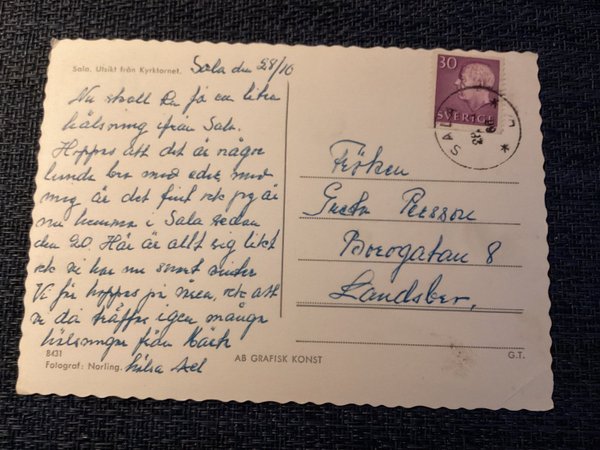 Sala. Utsikt från Kyrktornet.
Sala den 28/10
Nu skall Du få en liten
hälsning ifrån Sala.
Hoppas att det är någor
lunda bra med eder, med
mig är det fint och jag är
nu hemma i Sala sedan
den 20. Här är allt sig likt
och vi har nu snart vinter
Vi får hoppas på våren, och att
vi då träffas igen många
hälsningar från
hälsa
8431
Fotograf: Norling.
AB GRAFISK KONST
G.T.
30
SVERIGE
SALA
Fröken
Greta Persson
Borogatan 8
Landsbro,